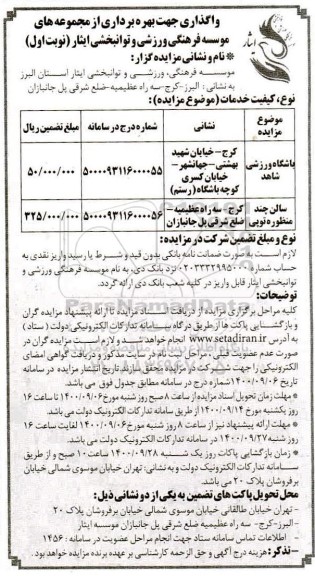 واگذاری جهت بهره برداری از مجموعه های
موسسه فرهنگی ورزشی و توانبخشی ایثار (نوبت اول)
ایثار
* نام و نشانی مزایده گزار:
موسسه فرهنگی، ورزشی و توانبخشی ایثار استان البرز
به نشانی: البرز-کرج-سه راه عظیمیه-ضلع شرقی پل جانبازان
نوع، کیفیت خدمات (موضوع مزایده):
موضوع مزایده | نشانی | شماره درج در سامانه | مبلغ تضمین ریال
باشگاه ورزشی شاهد | کرج- خیابان شهید بهشتی- جهانشهر- خیابان کسری کوچه باشگاه (رستم) | 5000093116000055 | 50/000/000
سالن چند منظوره نوبنی | کرج- سه راه عظیمیه ضلع شرقی پل جانبازان | 5000093116000056 | 325/000/000
نوع و مبلغ تضمین شرکت در مزایده:
لازم است به صورت ضمانت نامه بانکی بدون قید و شرط یا رسید واریز نقدی به
حساب شماره 0203332995000 نزد بانک دی، به نام موسسه فرهنگی ورزشی و
توانبخشی ایثار قابل واریز در کلیه شعب بانک دی ارائه گردد.
توضیحات:
کلیه مراحل برگزاری مزایده از دریافت اسناد مزایده تا ارائه پیشنهاد مزایده گران
و بازگشایی پاکت ها از طریق درگاه سامانه تدارکات الکترونیکی دولت (ستاد)
به آدرس www.setadiran.ir انجام خواهد شد و لازم است مزایده گران در
صورت عدم عضویت قبلی، مراحل ثبت نام در سایت مذکور و دریافت گواهی امضای
الکترونیکی را جهت شرکت در مزایده محقق سازند تاریخ انتشار مزایده در سامانه
تاریخ 1400/09/06 شماره درج در سامانه مطابق جدول فوق می باشد.
* مهلت زمان تحویل اسناد مزایده از ساعت 8 صبح روز شنبه مورخ 1400/09/06 تا ساعت 16
روز یکشنبه مورخ 1400/09/14 از طریق سامانه تدارکات الکترونیک دولت می باشد.
* مهلت ارائه پیشنهاد نیز از ساعت 8 روز شنبه مورخ 1400/09/06 لغایت ساعت 16
روز شنبه 1400/09/27 در سامانه تدارکات الکترونیک دولت می باشد.
* زمان بازگشایی پاکات روز یک شنبه 1400/09/28 ساعت 10 صبح و از طریق
سامانه تدارکات الکترونیک دولت و به نشانی: تهران خیابان موسوی شمالی خیابان
برفروشان پلاک 20 می باشد.
محل تحویل پاکت های تضمین به یکی از دو نشانی ذیل:
- تهران خیابان طالقانی خیابان موسوی شمالی خیابان برفروشان پلاک 20
- البرز-کرج- سه راه عظیمیه ضلع شرقی پل جانبازان موسسه ایثار
- اطلاعات تماس سامانه ستاد جهت انجام مراحل عضویت در سامانه: 1456
تذکر: هزینه درج آگهی و حق الزحمه کارشناسی بر عهده برنده مزایده خواهد بود.
ParsNamadData